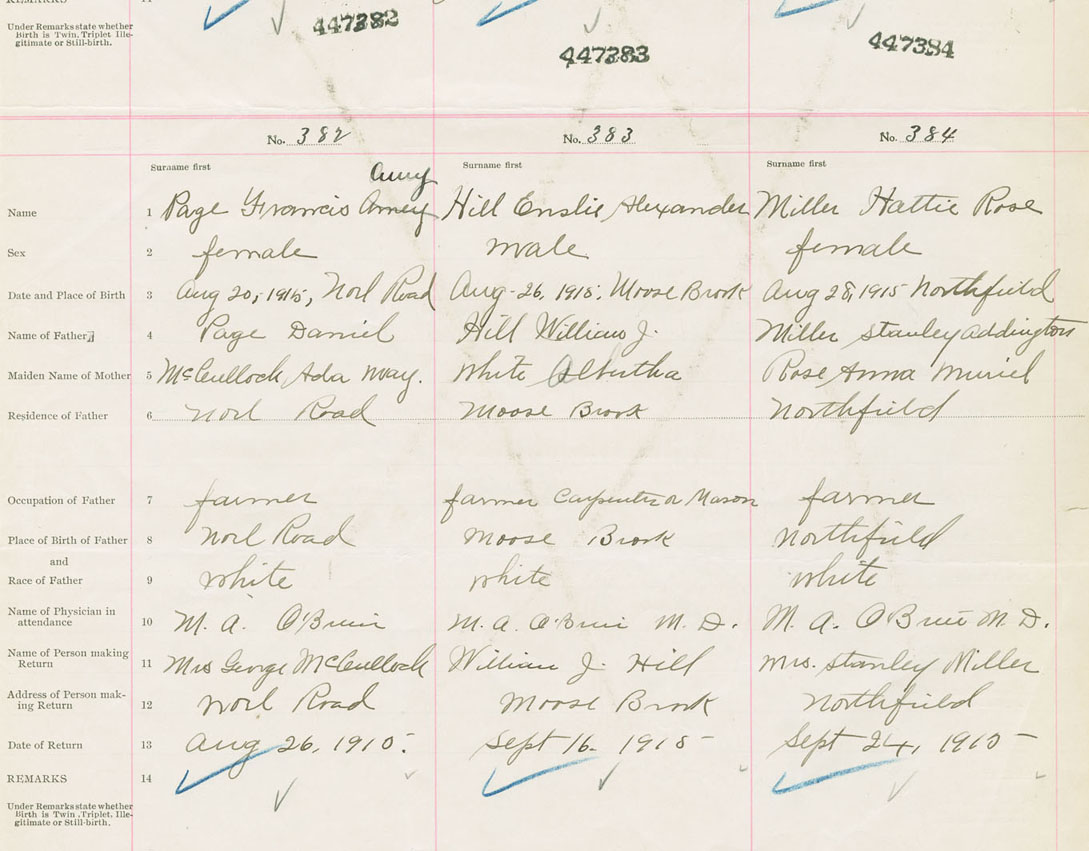 REMARKS 14
Under Remarks state whether
Birth is Twin, Triplet, Ille-
gitimate or Still-birth.
447382 447383 447384
No. 382 No. 383 No. 384
Surname first Surname first Surname first
Amy
Name 1 Page Francis Amey Hill Enslie Alexander Miller Hattie Rose
Sex 2 female male female
Date and Place of Birth 3 Aug 20, 1915, Noel Road Aug-26, 1915. Moose Brook Aug 28, 1915 Northfield
Name of Father 4 Page Daniel Hill William J. Miller Stanley Addington
Maiden Name of Mother 5 McCullock, Ada May. White Albertha Rose Anna Muriel
Residence of Father 6 Noel Road Moose Brook Northfield
Occupation of Father 7 farmer farmer Carpenter or Mason farmer
Place of Birth of Father 8 Noel Road Moose Brook Northfield
and
Race of Father 9 white white white
Name of Physician in
attendance 10 M. A. O'Brien M. A. O'Brien M. D. M. A. O'Brien M. D.
Name of Person making
Return 11 Mrs George McCullock William J. Hill Mrs. Stanley Miller
Address of Person mak-
ing Return 12 Noel Road Moose Brook Northfield
Date of Return 13 Aug 26, 1915. Sept 16. 1915 Sept 24, 1915
REMARKS 14
Under Remarks state whether
Birth is Twin, Triplet, Ille-
gitimate or Still-birth.